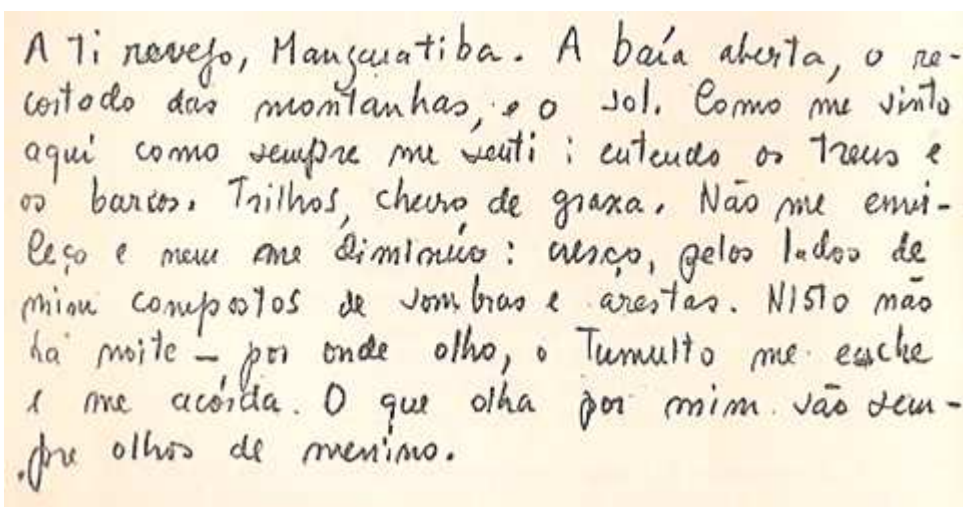 A Ti revejo, Mangaratiba. A baía aberta, o re-
costado das montanhas, e o sol. Como me sinto
aqui como sempre me senti : entendo os trens e
os barcos. Trilhos, cheiro de graxa. Não me envi-
leço e nem me diminúo : cresço, pelos lados de
mim compostos de sombras e arestas. Nisto não
há noite – por onde olho, o Tumulto me enche
e me acórda. O que olha por mim são sem-
pre olhos de menino.